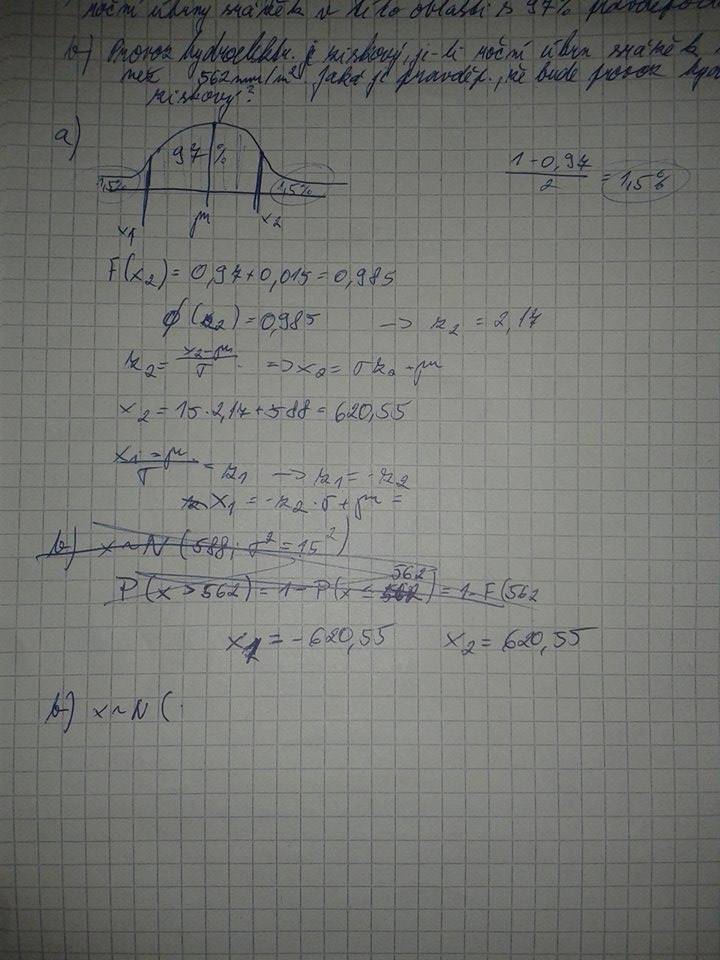 roční úhrny srážek v této oblasti s 97%
b) Provoz hydroelektr. je ziskový, je-li roční úhrn srážek
než 562 mm/m². Jaká je pravděp., že bude provoz
ziskový?
a)
97 %
1,5%
1,5%
x₁ μ x₂
(1-0,97)/2 = 1,5%
F(x₂) = 0,97+0,015 = 0,985
ϕ(z₂) = 0,985 → z₂ = 2,17
z₂ = (x₂-μ)/σ ⇒ x₂ = σz₂ + μ
x₂ = 15·2,17+588 = 620,55
(x₁-μ)/σ = z₁ → z₁ = -z₂
x₁ = -z₂·σ+μ =
b) x~N(588; σ²=15²)
P(x>562) = 1-P(x≤562) = 1-F(562
x₁ = -620,55 x₂ = 620,55
b) x~N(